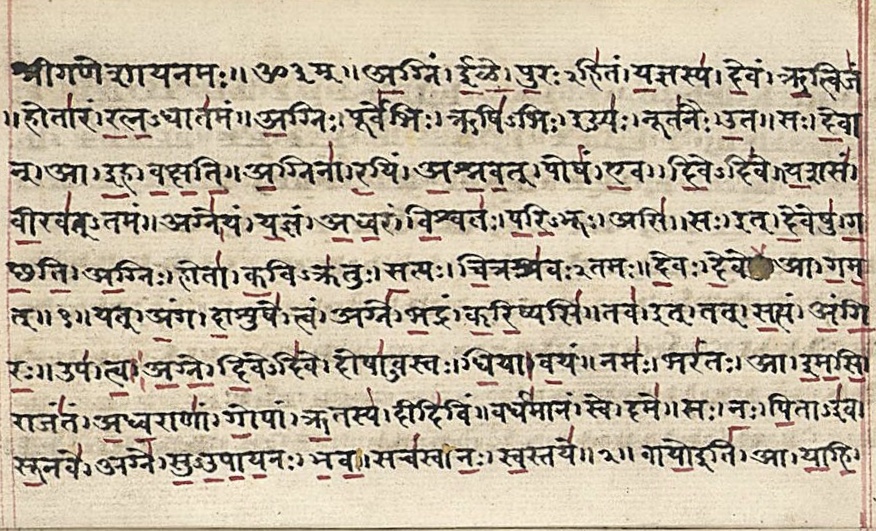 श्रीगणेशायनमः॥ ॐ३म्॥ अ॒ग्निं। ई॒ळे॒। पु॒रःऽहि॑तं। य॒ज्ञस्य॑। दे॒वं। ऋ॒त्विजं॑
॥होता॑रं। र॒त्न॒ऽधात॑मं॥ अ॒ग्निः। पूर्वे॑भिः। ऋषि॑ऽभिः। ईड्यः॑। नूत॑नैः। उ॒त॥ सः। दे॒वा
न्। आ। इ॒ह। व॒क्ष॒ति॒॥ अ॒ग्निना॑। र॒यिं। अ॒श्न॒व॒त्। पोषं॑। ए॒व। दि॒वेऽदि॑वे॥ य॒शसं॑
वी॒रव॑त्ऽतमं॥ अग्ने॑। यं। य॒ज्ञं। अ॒ध्व॒रं। वि॒श्वतः॑। प॒रि॒ऽभूः। असि॑॥ सः। इत्। दे॒वेषु॑। ग
च्छ॒ति॒। अ॒ग्निः। होता॑। क॒विऽक्र॑तुः। स॒त्यः। चि॒त्रश्र॑वःऽतमः॥ दे॒वः। दे॒वे आ। ग॒म॒
त्॥१॥ यत्। अं॒ग। दा॒शुषे॑। त्वं। अग्ने॑। भ॒द्रं। क॒रि॒ष्यसि॑॥ तव॑। इत्। तत्। स॒त्यं। अं॒गि॒
रः॒॥ उप॑। त्वा॒। अ॒ग्ने॒। दि॒वेऽदि॑वे। दोषा॑ऽवस्तः। धि॒या। व॒यं॥ नमः॑। भरं॑तः। आ। इ॒म॒सि॒
राजं॑तं। अ॒ध्व॒राणां॑। गो॒पां। ऋ॒तस्य॑। दीदि॑विं॥ वर्ध॑मानं। स्वे। दमे॑॥ सः। नः॒। पि॒ताऽइ॑व।
सू॒नवे॑। अग्ने॑। सु॒ऽउ॒पा॒य॒नः। भ॒व॒॥ सच॑स्व। नः॒। स्व॒स्तये॑॥२॥ वायो॒इति॑। आ। या॒हि॒।